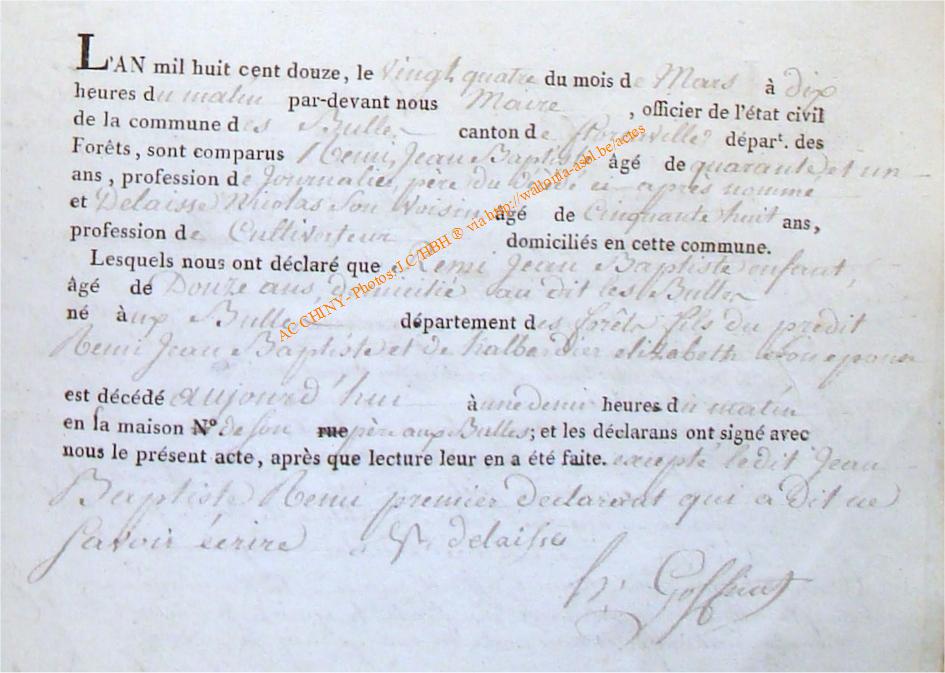 L'AN mil huit cent douze, le vingt quatre du mois de Mars à dix
heures du matin par-devant nous Maire , officier de l'état civil
de la commune des Bulles canton de florenville, départ. des
Forêts, sont comparus Remi, Jean Baptiste âgé de quarante et un
ans, profession de Journalier, père du décédé ci-après nommé
et Delaisse Nicolas son voisin âgé de Cinquante huit ans,
profession de Cultivateur domiciliés en cette commune.
Lesquels nous ont déclaré que Remi Jean Baptiste enfant,
âgé de Douze ans, domicilié au dit les Bulles
né aux Bulles département des forêts fils du prédit
Remi Jean Baptiste et de elizabeth son epouse
est décédé aujourd'hui à une demi heures du matin
en la maison N° de son rue père aux Bulles; et les déclarans ont signé avec
nous le présent acte, après que lecture leur en a été faite. excepté ledit Jean
Baptiste Remi premier declarant qui a dit ne
savoir écrire delaisse
Goffinet
AC CHINY - Photos: J.C HBH ® via http://wallonia-asbl.be/actes